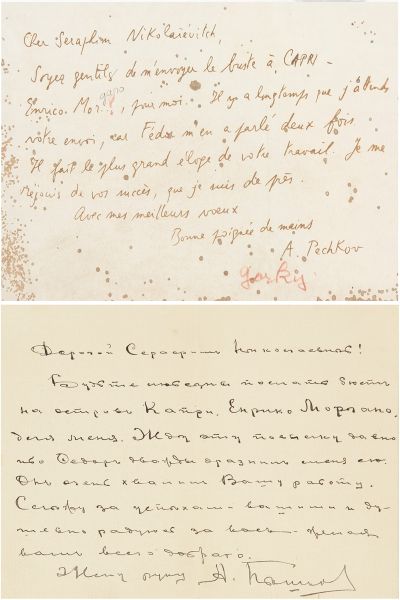 Cher Seraphim Nikolaïevitch,
Soyez gentils de m'envoyer le buste à CAPRI -
Enrico. Mor gano, pour moi. Il y a longtemps que j'attends
votre envoi, car Fédor m'en a parlé deux fois
Il fait le plus grand éloge de votre travail. Je me
réjouis de vos succès, que je suis de près.
Avec mes meilleurs voeux
Bonne poignée de mains
A. Pechkov
gorky.
Дорогой Серафим Николаевич!
Будьте любезны послать бюст
на остров Капри, Енрико Моргано,
для меня. Жду эту посылку давно
ибо Федор дважды дразнил меня ею.
Он очень хвалит Вашу работу.
Слежу за успехами вашими и ду-
шевно радуюсь за вас - желая
вам всего доброго.
Жму руку А. Пешков